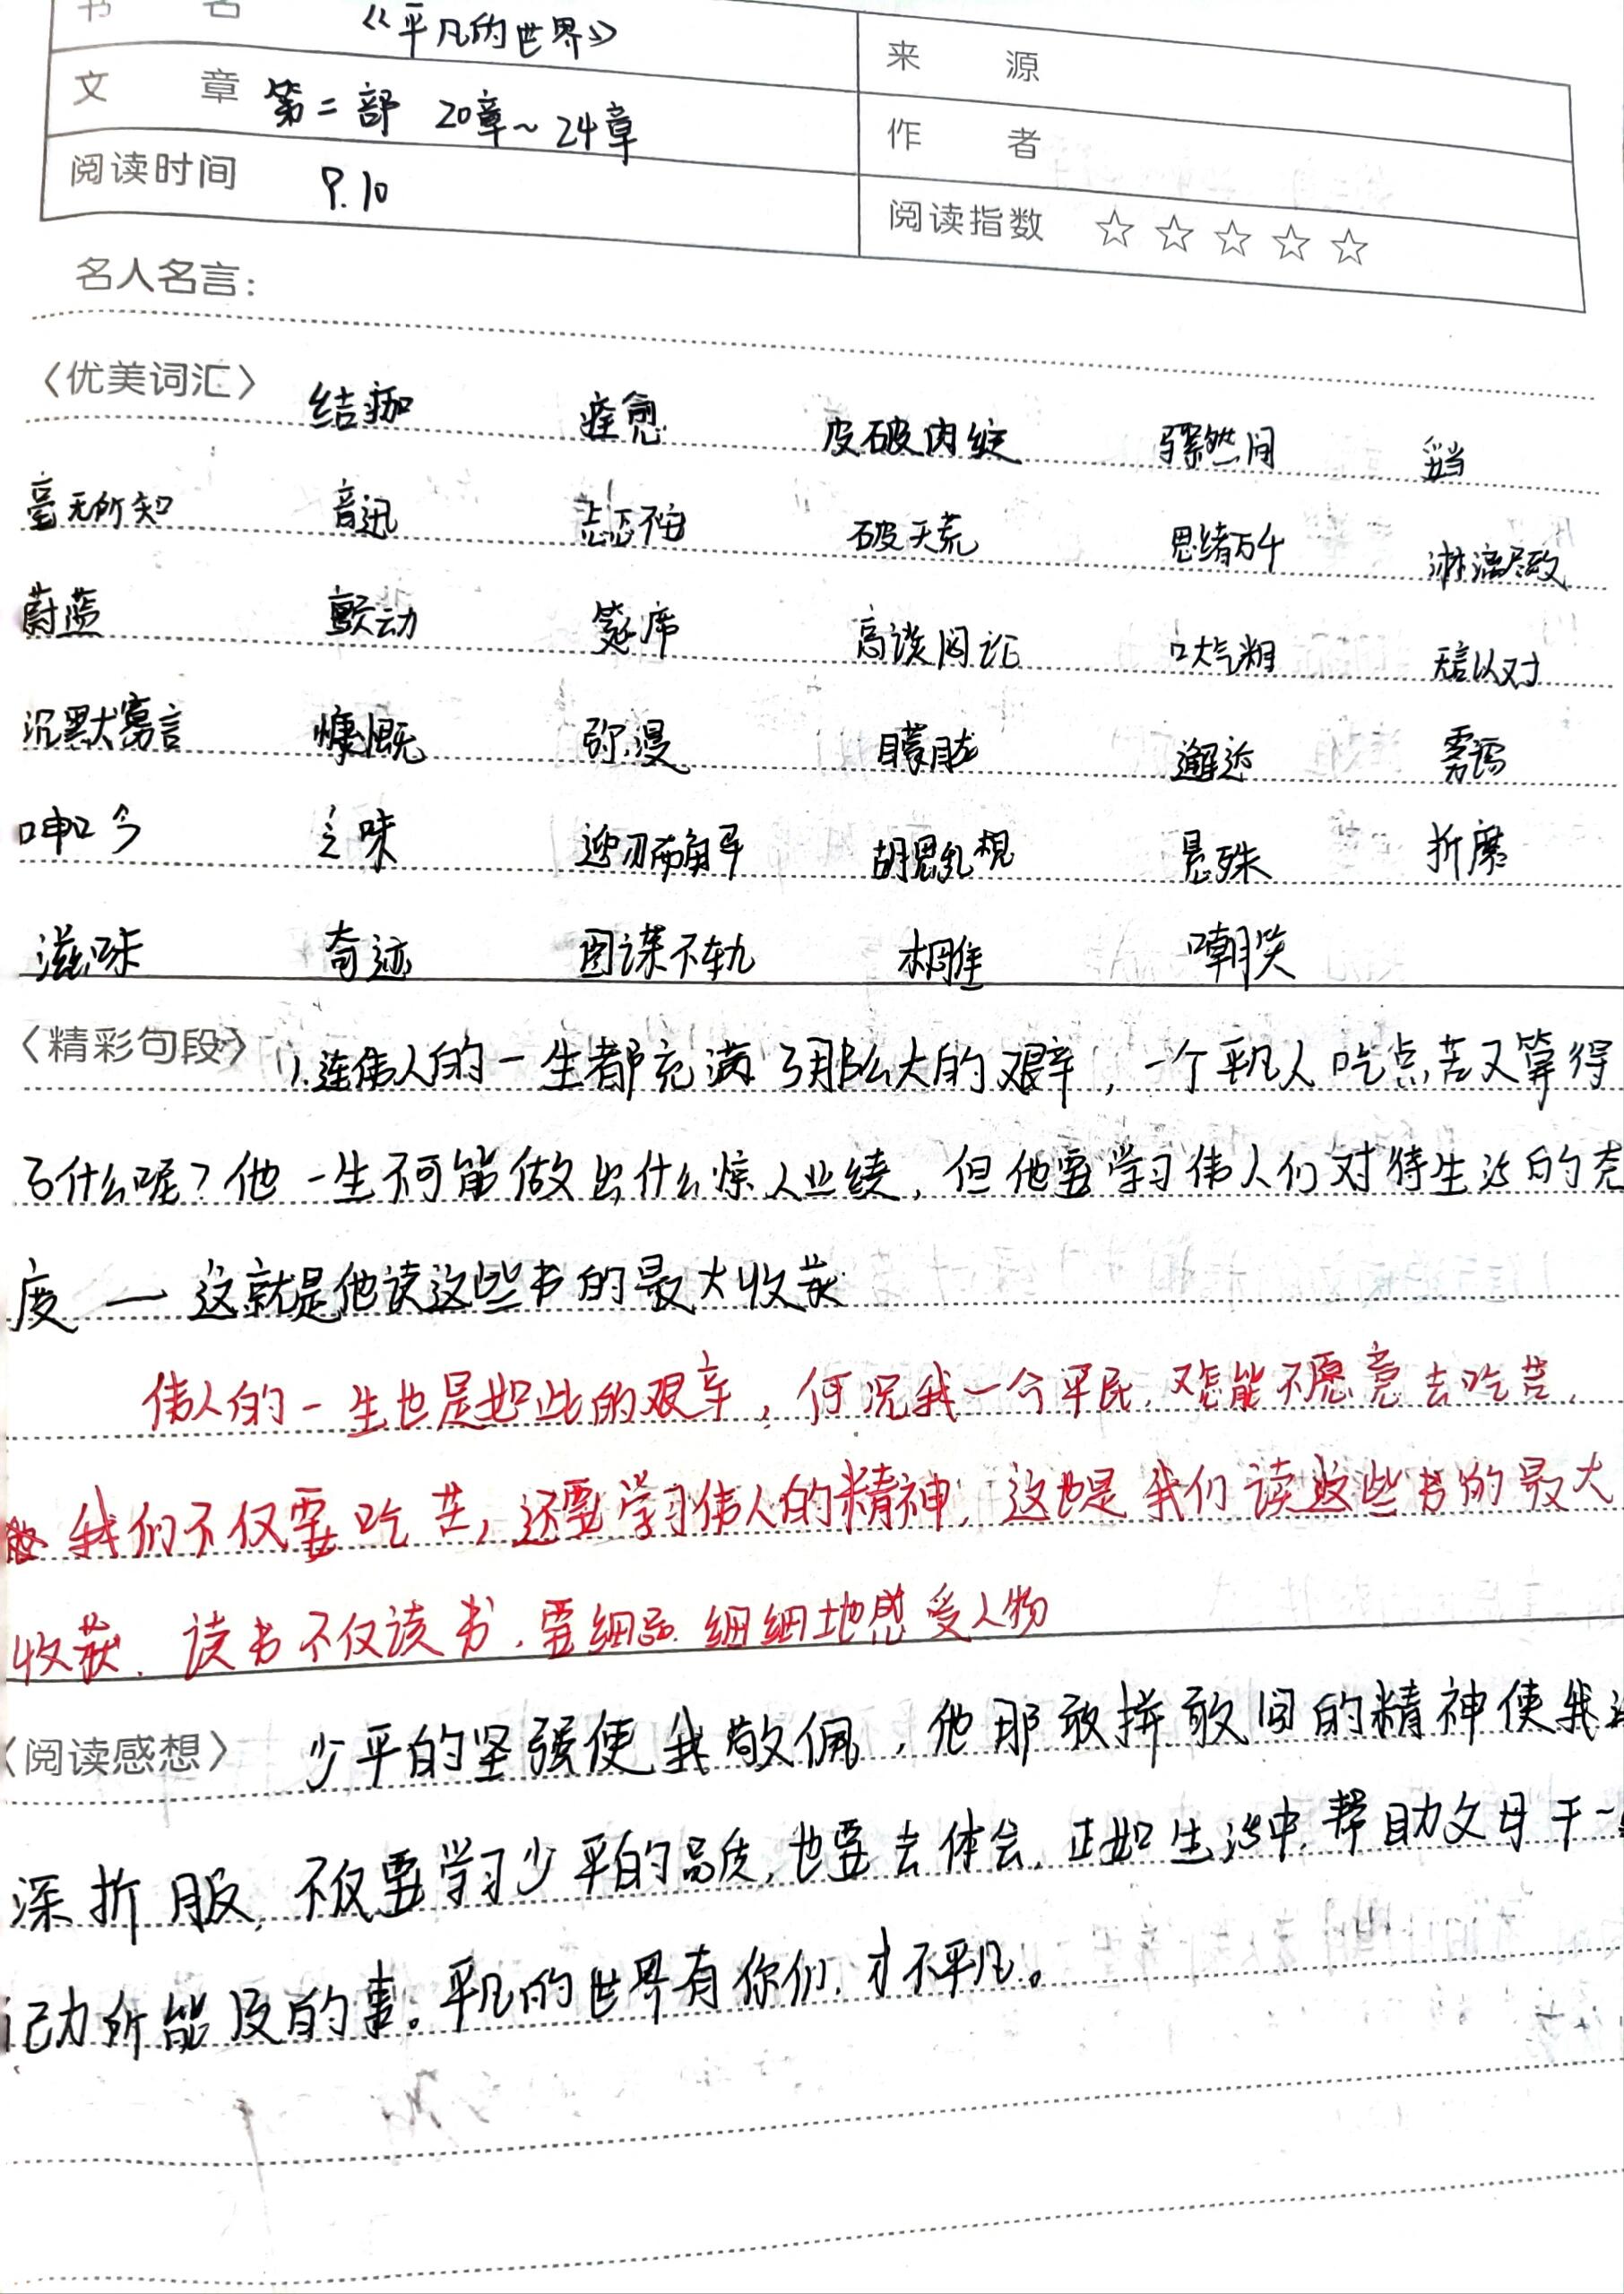 书 名 《平凡的世界》 来 源
文 章 第二部 20章~24章 作 者
阅读时间 9.10 阅读指数 ☆ ☆ ☆ ☆ ☆
名人名言:
〈优美词汇〉 结痂 痊愈 皮破肉绽 骤然间 妥当
毫无所知 音迅 忐忑不安 破天荒 思绪万千 淋漓尽致
蔚蓝 颤动 筵席 高谈阔论 口大气粗 无言以对
沉默寡言 慷慨 弥漫 朦胧 邂逅 雾霭
呻吟 乏味 迎刃而解 胡思乱想 悬殊 折磨
滋味 奇迹 图谋不轨 嘲笑
〈精彩句段〉 1.连伟人的一生都充满了那么大的艰辛，一个平凡人吃点苦又算得
了什么呢?他一生不可能做出什么惊人业绩，但他要学习伟人们对待生活的态
度 — 这就是他读这些书的最大收获
伟人的一生也是如此的艰辛，何况我一个平民，又怎能不愿意去吃苦，
我们不仅要吃苦，还要学习伟人的精神，这也是我们读这些书的最大
收获，读书不仅读书，要细品，细细地感受人物
〈阅读感想〉 少平的坚强使我敬佩，他那敢拼敢闯的精神使我深
深折服，不仅要学习少平的品质，也要去体会，正如生活中，帮助父母干一
己力所能及的事。平凡的世界有你们，才不平凡。